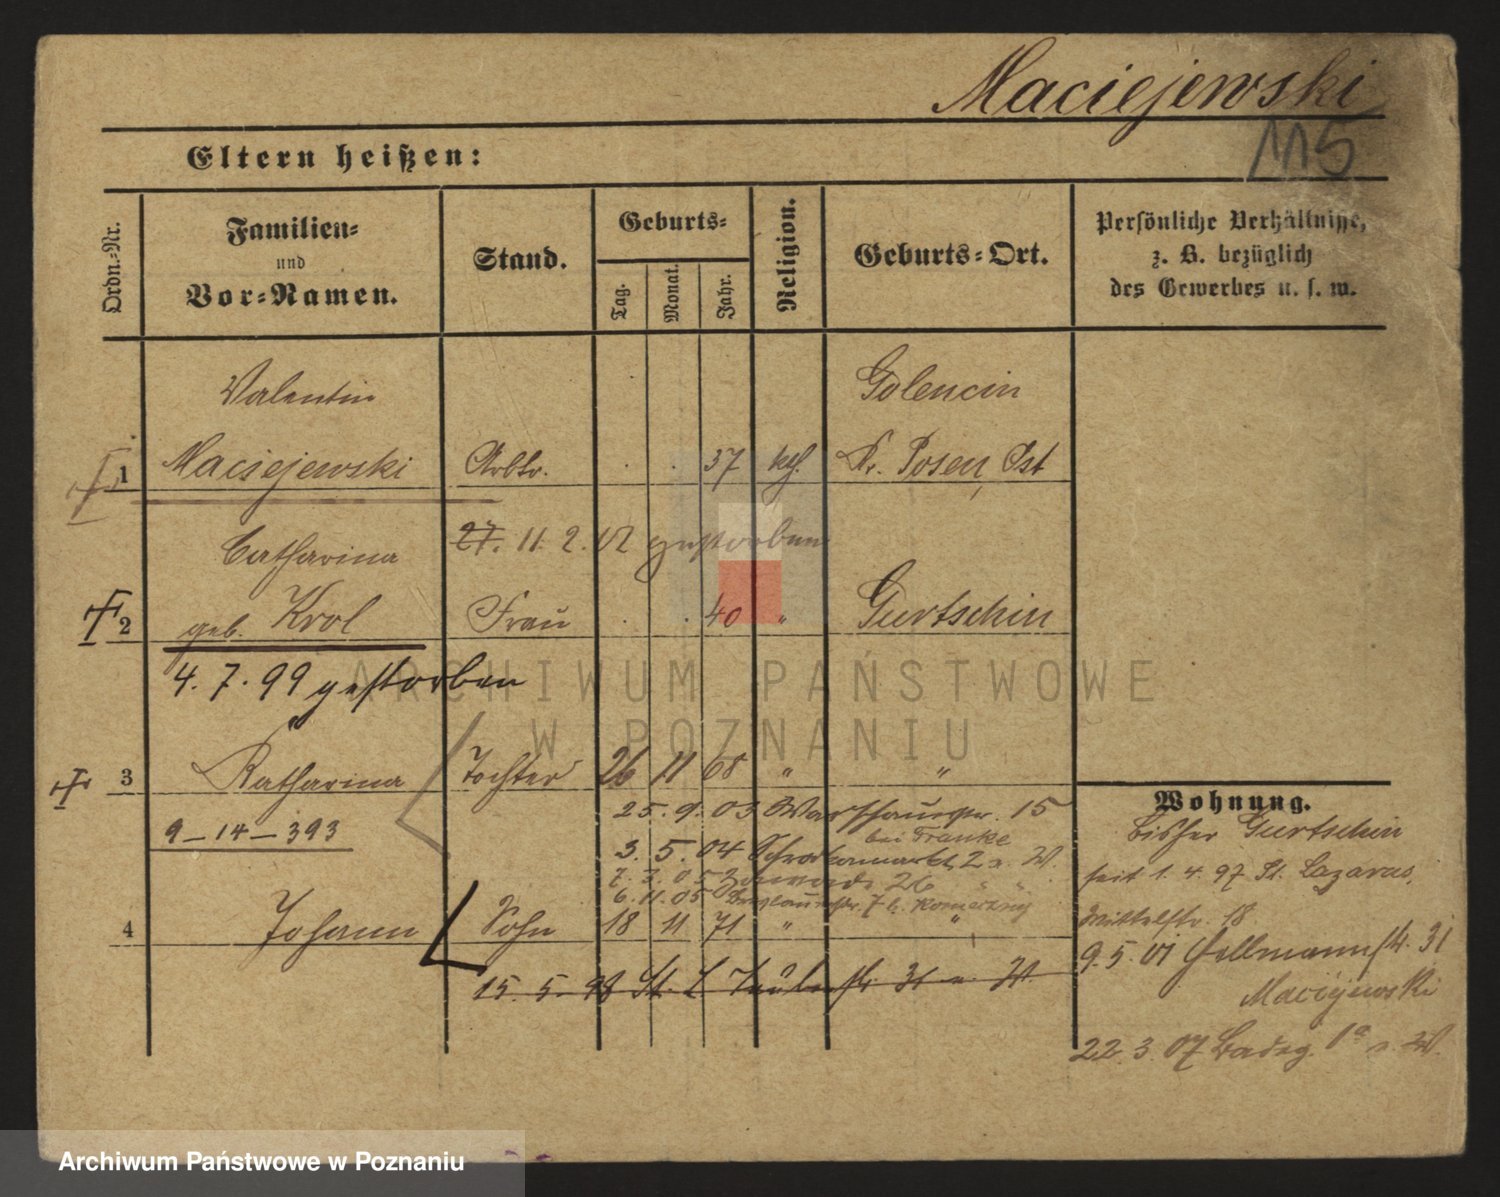 Maciejewski
115
Eltern heißen:
Ordn.-Nr.
Familien-
und
Vor-Namen.
Stand.
Geburts-
Tag.
Monat.
Jahr.
Religion.
Geburts-Ort.
Persönliche Verhältnisse,
z. B. bezüglich
des Gewerbes u. s. w.
Valentin Golencin
1 Maciejewski Arbtr. 37 kth. Kr. Posen, Ost
Catharina 27. 11. 2. 12 gestorben
2 geb. Krol Frau 40 " Gurtschin
4. 7. 99 gestorben
3 Katharina Tochter 26 11 68 " "
9-14-393
25. 9. 03 Warschauerstr. 15
bei Franke
3. 5. 04 Schrodkamarkt 2 a. W.
7. 3. 05 Zawade 26 " "
6. 11. 05 7 b.
4 Johann Sohn 18 11 71 " "
15. 5. 98 St. L. 31 a. W.
Wohnung.
bisher Gurtschin
seit 1. 4. 97 St. Lazarus,
Mittelstr. 18
9. 5. 01 Hellmannstr. 31
Maciejewski
22. 3. 07 Badeg. 1a a. W.
ARCHIWUM PAŃSTWOWE
W POZNANIU
Archiwum Państwowe w Poznaniu